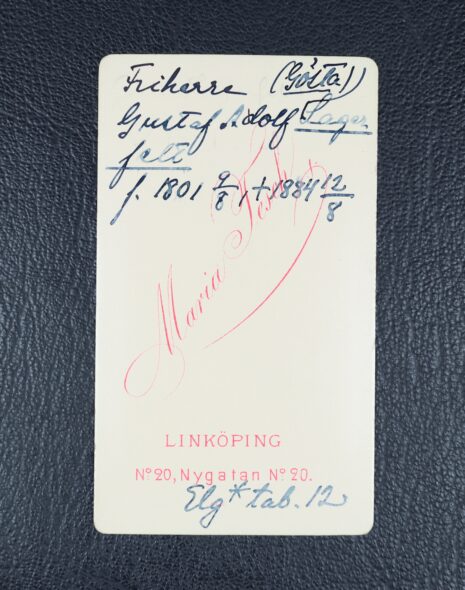 Friherre (Gösta)
Gustaf Adolf Lager
felt
f. 1801 9/8, †1884 12/8
Maria Tesch
LINKÖPING
No 20, Nygatan No 20.
Elg* tab. 12